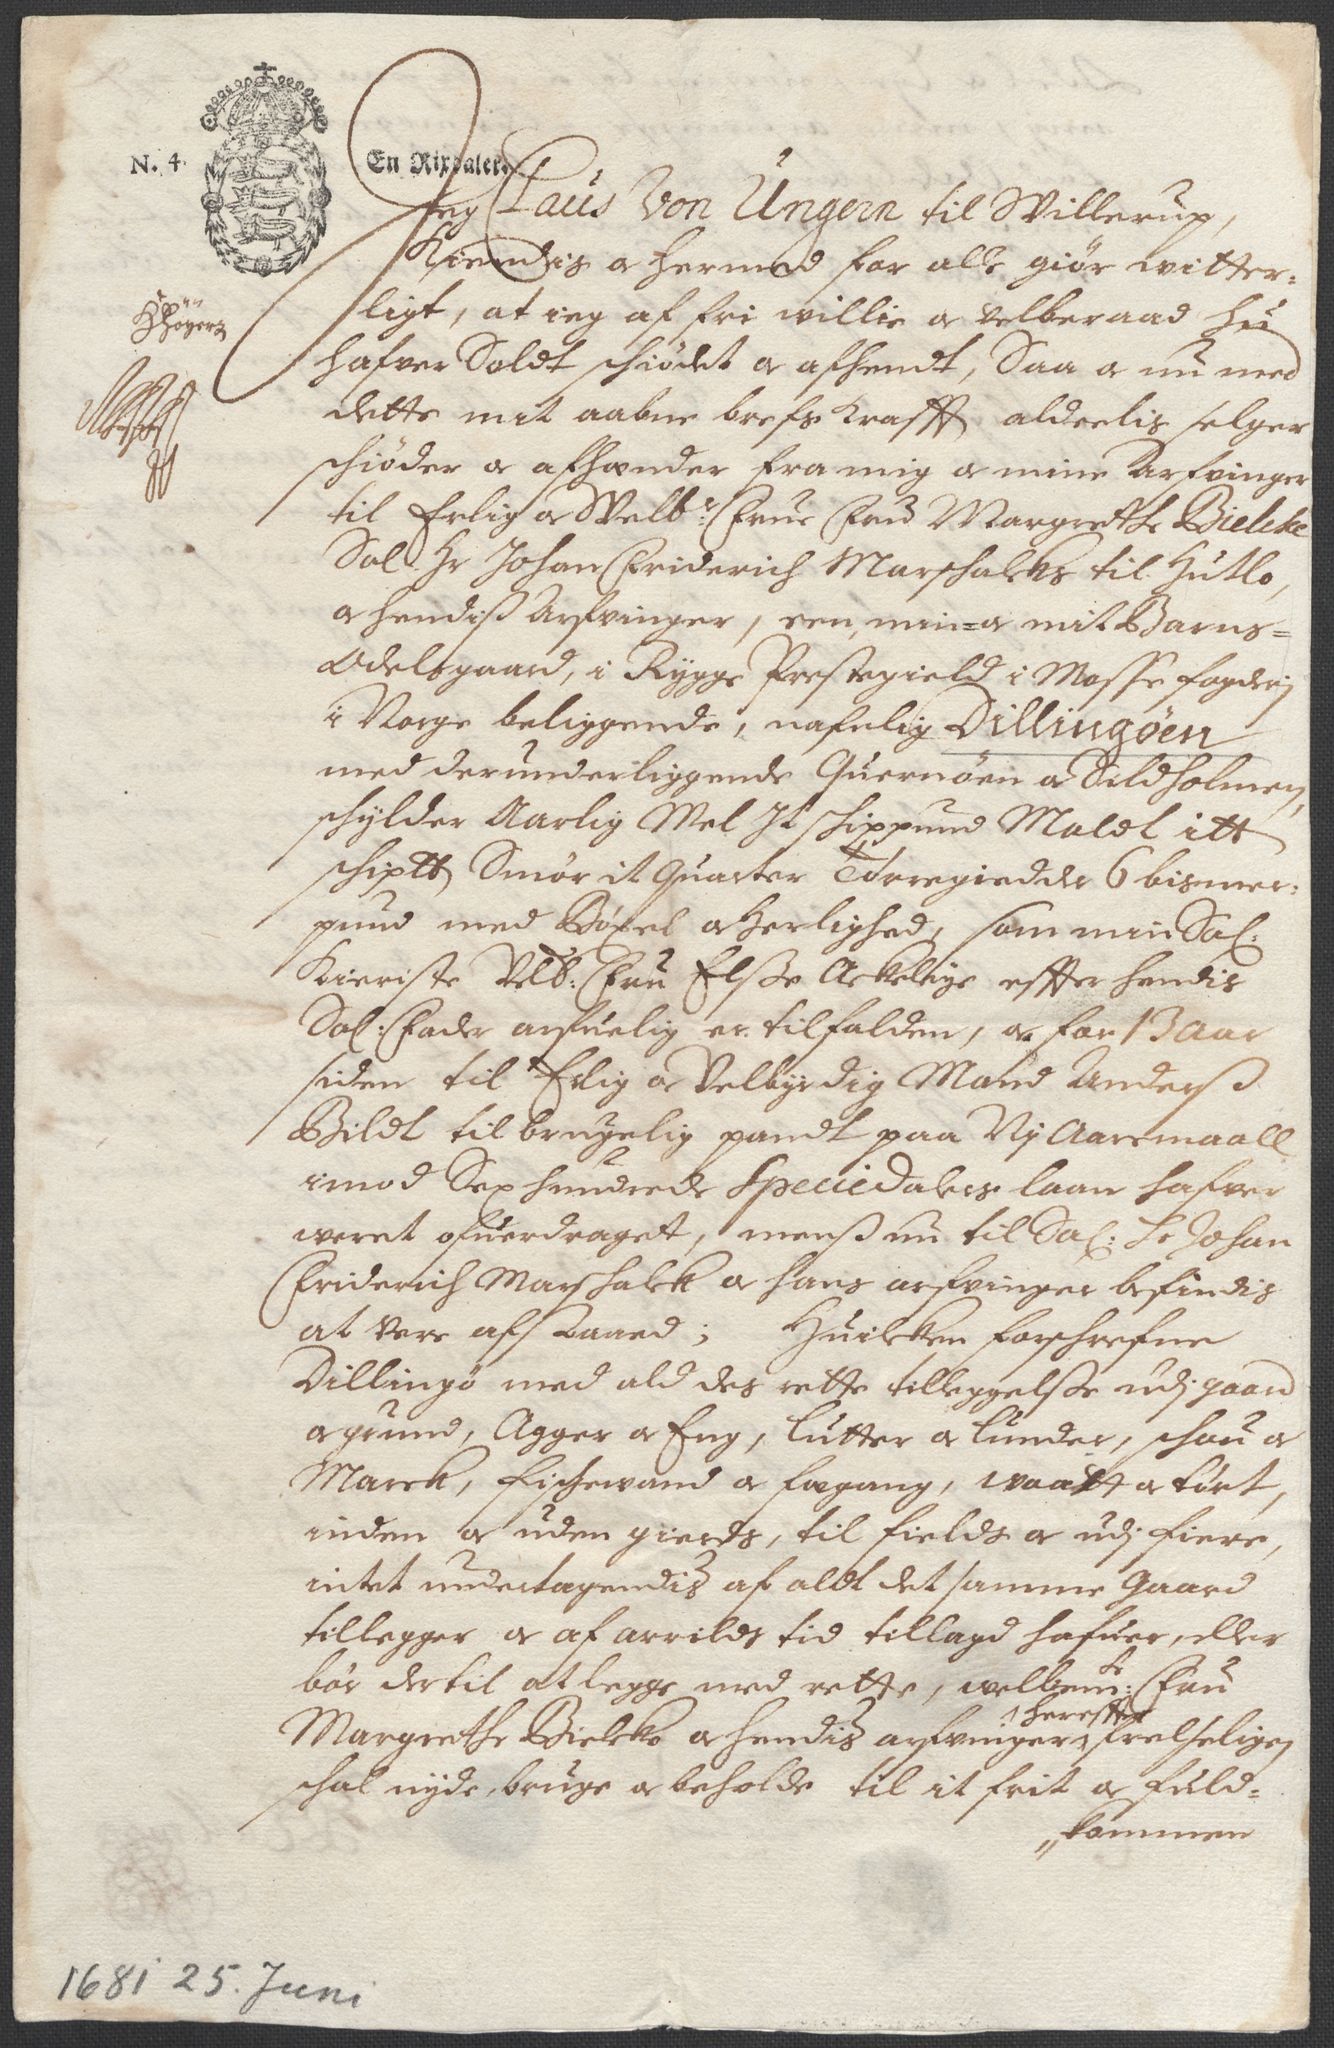 N. 4.
En Rixdaler.
Jeg Claus Von Ungern til Willerup,
Kiendis a hermed for alle giør witter-
ligt, at ieg af fri willie a velberaad hu
hafver Soldt schiødet a afhendt, Saa a nu med
dette mit aabne brefs Krafft aldeelis selger
schiøder a afhænder fra mig a mine Arfvinger
til Erlig a Welb: Frue Fru Margrethe Bielcke
Sal. Hr Johan Friderich Marschalcks til Hutlo,
a hendiß Arfvinger, een, min= a mit Barns=
Odelsgaard, i Rygge Prestegield i Mosse fogderj
i Norge beliggende, nafnlig Dillingøen
med derunderliggende Quernøen a Sildholmen,
schylder Aarlig Mel It schippund Maldt itt
schiptt Smør it Quarter Tørregiedder 6 bismer-
pund med Bøxel a Herlighed, som min Sal:
Kieriste Velb: Fru Elße Akeleye effter hendis
Sal: Fader arfuelig er tilfalden, a for 13 Aar
siden til Erlig a Velbyrdig Mand Anderß
Bildt til brugelig pandt paa Nj Aarsmaall
imod Sex hundrede Speciedalers laan hafver
weret ofuerdraget, menß nu til Sal: Hr Johan
Friderich Marschalck a hans arfvinger befindis
at vere afstaaed; Huilcken forschrefne
Dillingø med ald des rette tilleggelße udj gaard
a grund, Agger a Eng, lutter a lunder, schou a
Marck, fischevand a fægang, waatt a tørt,
inden a uden gierds, til fields a udj fiere,
intet undertagendiß af aldt det samme Gaard
tillegger a af arrilds tid tillagd hafuer, eller
bør dertil at legge med rette, welbem:te Fru
Margrethe Bielcke a hendiß arfvinger hereffter frelseligen
schal nyde, bruge a beholde til it frit a fuld=
kommen
1681 25. Juni